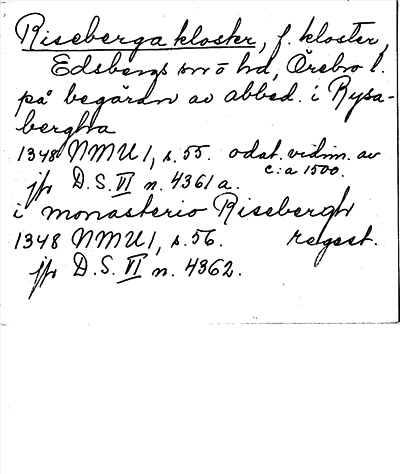 Riseberga kloster, f. kloster,
Edsbergs sn ö hd, Örebro l.
på begäran av abbed. i Rysa-
bergha
1348 NMU 1, s. 55. odat. vidim. av
c:a 1500.
jfr D.S. VI n. 4361 a.
i monasterio Risebergh
1348 NMU 1, s. 56. regest.
jfr D.S. VI n. 4362.